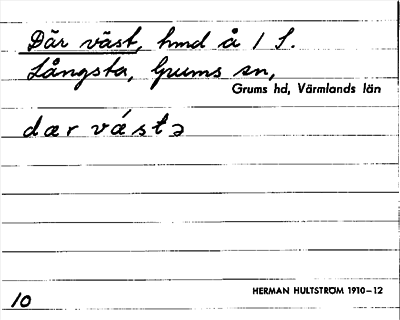 Där väst, hmd å 1 S.
Långsta, Grums sn,
Grums hd, Värmlands län
dær vást ə
HERMAN HULTSTRÖM 1910–12
10